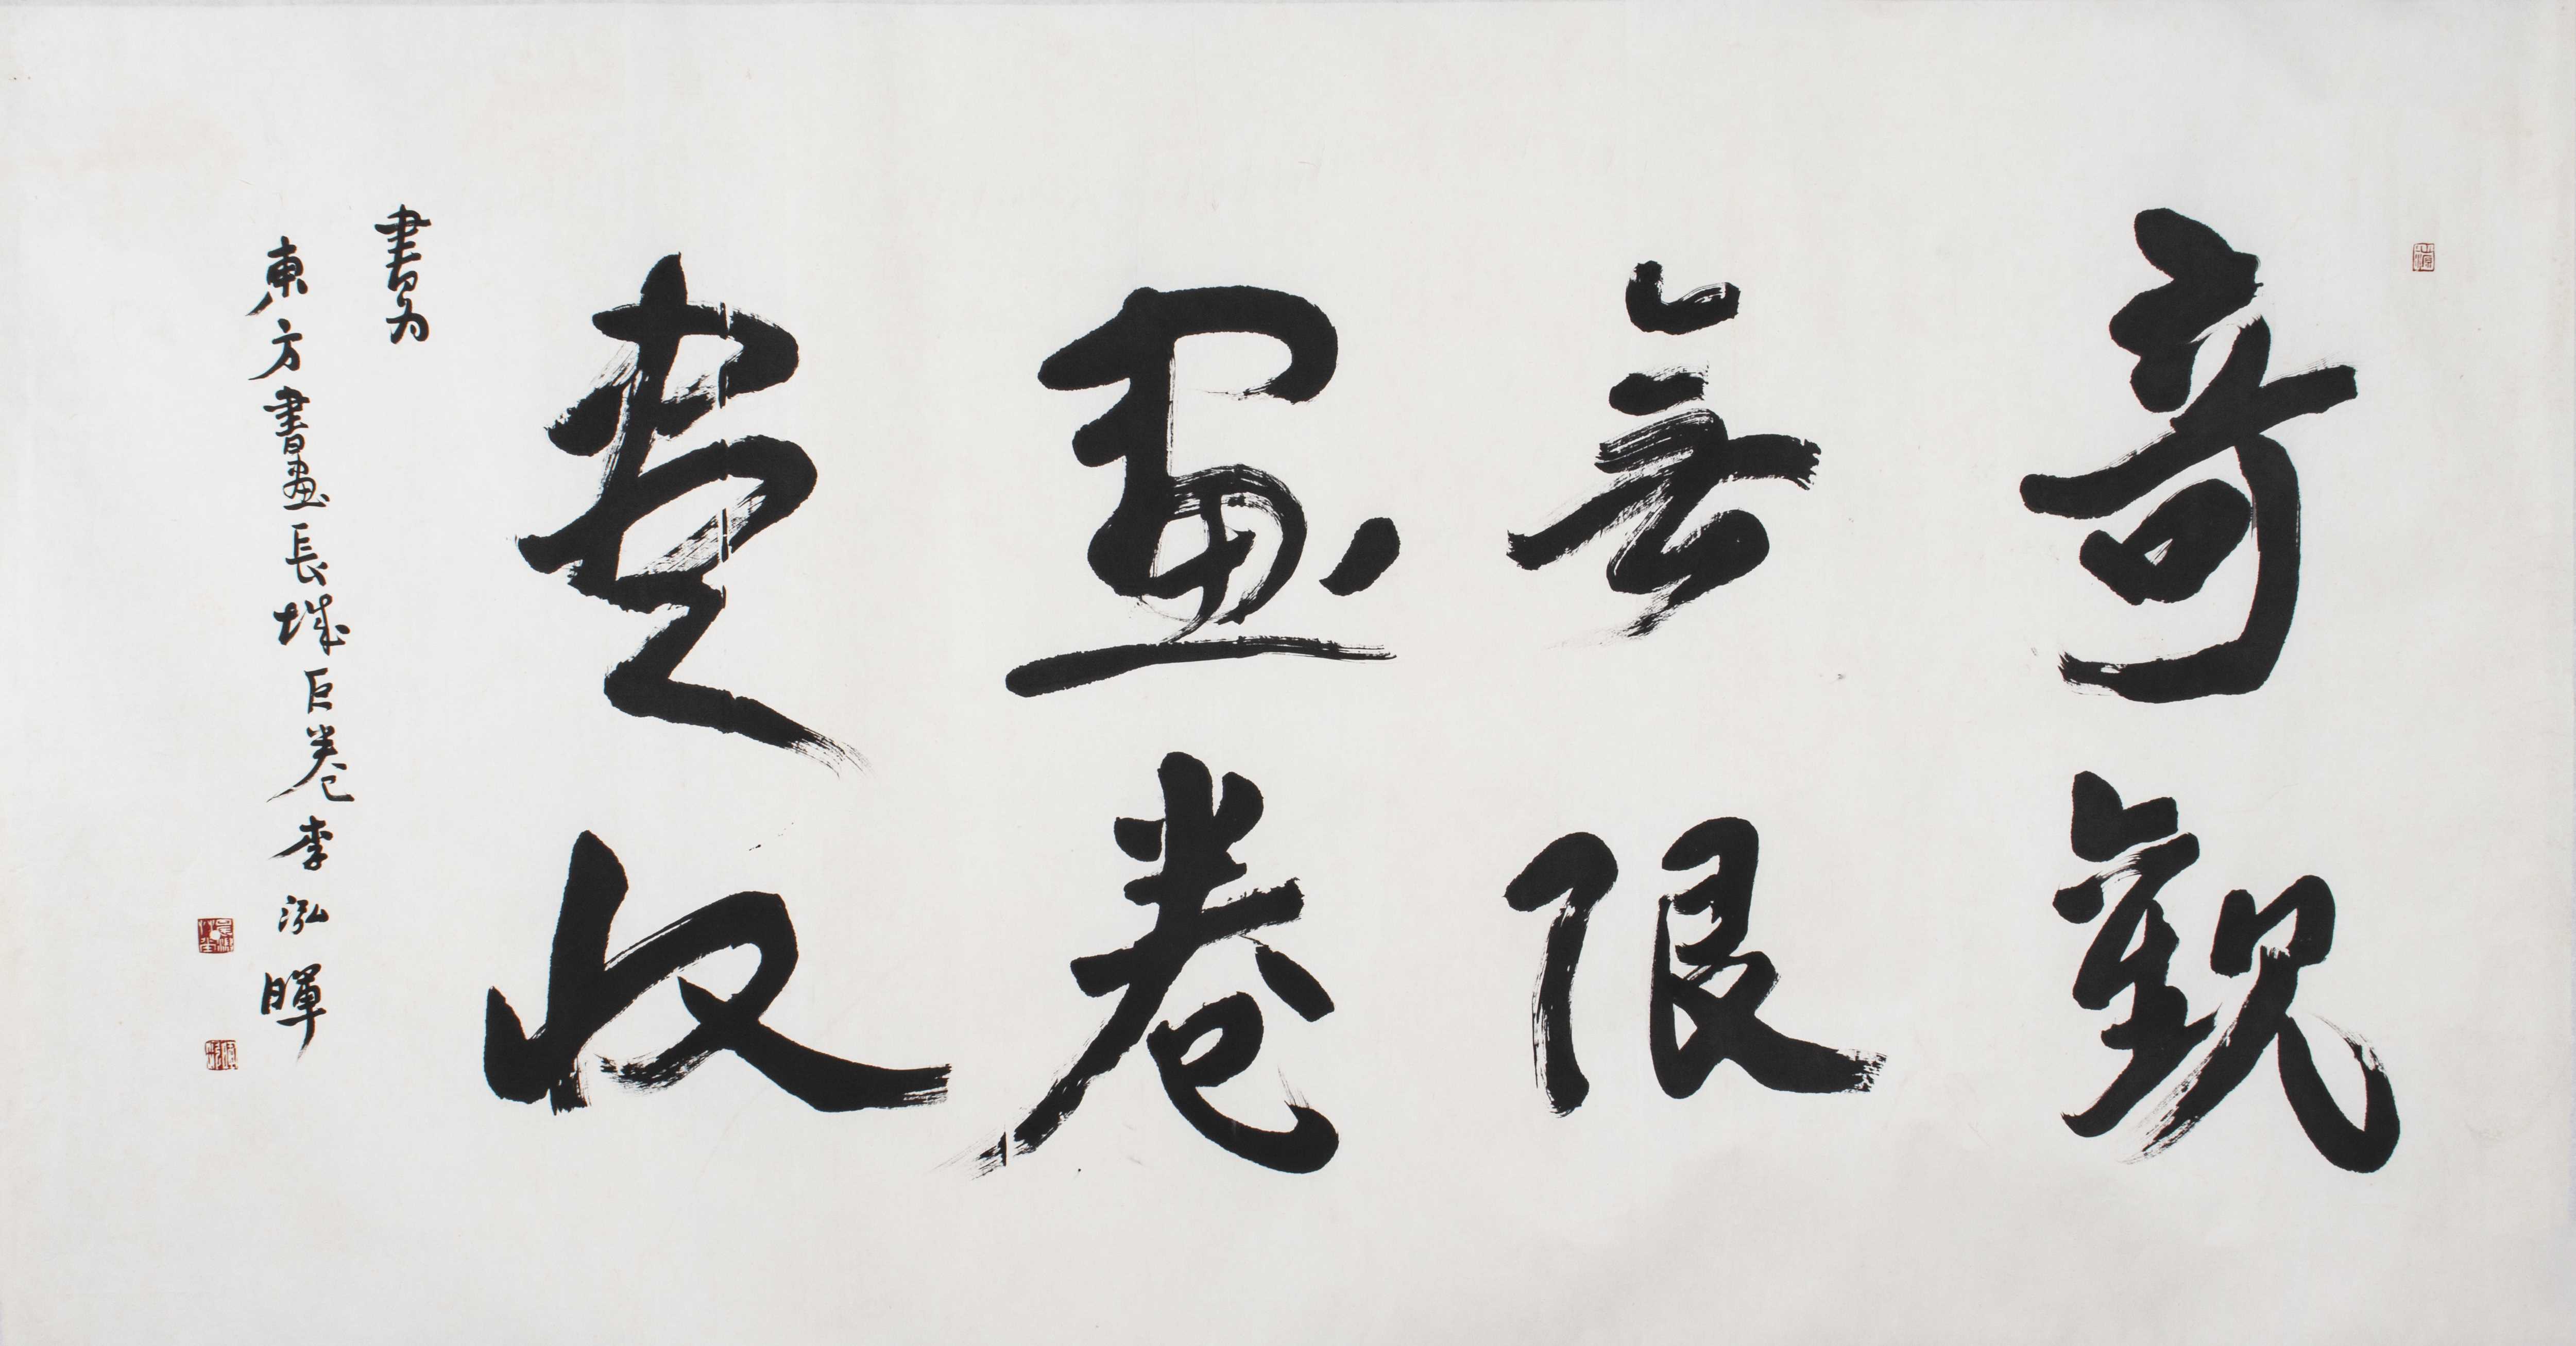 奇觀
無限
畫卷
盡收
書為
東方書畫長城巨卷李泓暉